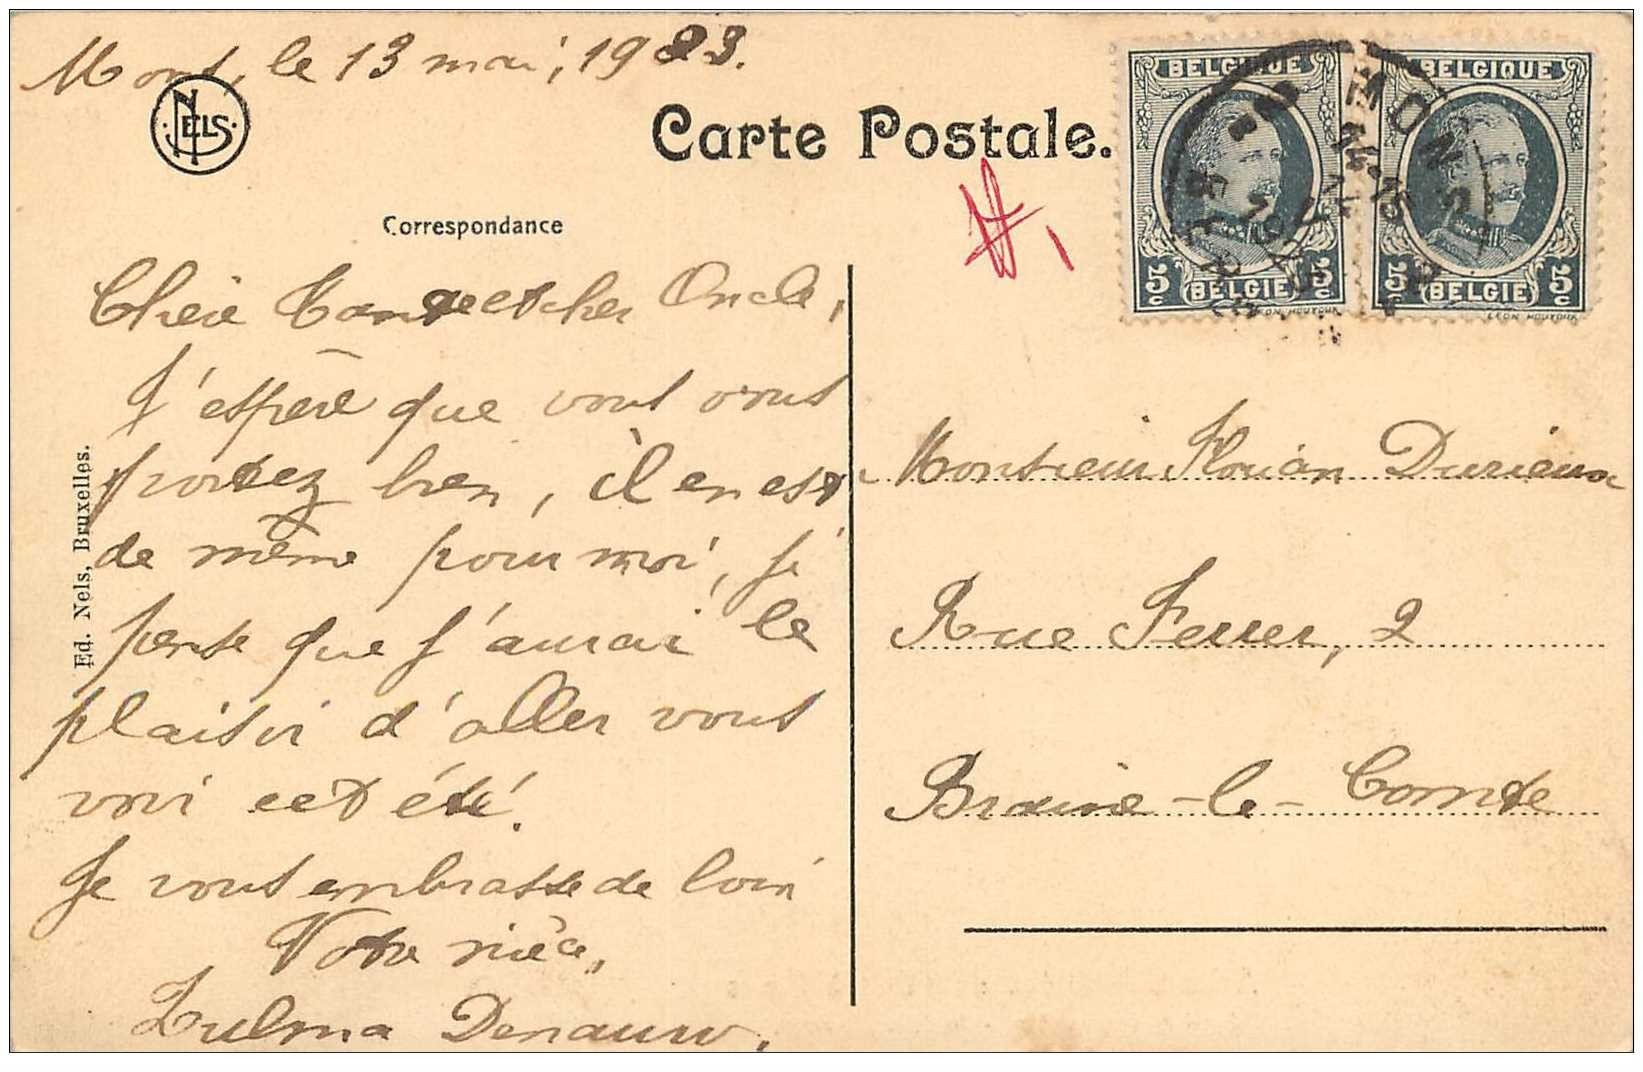 Mons, le 13 mai, 1923.
NELS
Carte Postale.
Correspondance
BELGIQUE
5c BELGIE 5c
BELGIQUE
5c BELGIE 5c
LEON HOUYOUX
MONS
14-15
Chère Tante et cher Oncle,
J'espère que vous vous
portez bien, il en est
de même pour moi, je
pense que j'aurai le
plaisir d'aller vous
voir cet été.
Je vous embrasse de loin
Votre nièce,
Zulma Denauw.
Monsieur Florian Durieux
Rue Ferrer, 2
Braine-le-Comte
Ed. Nels, Bruxelles.